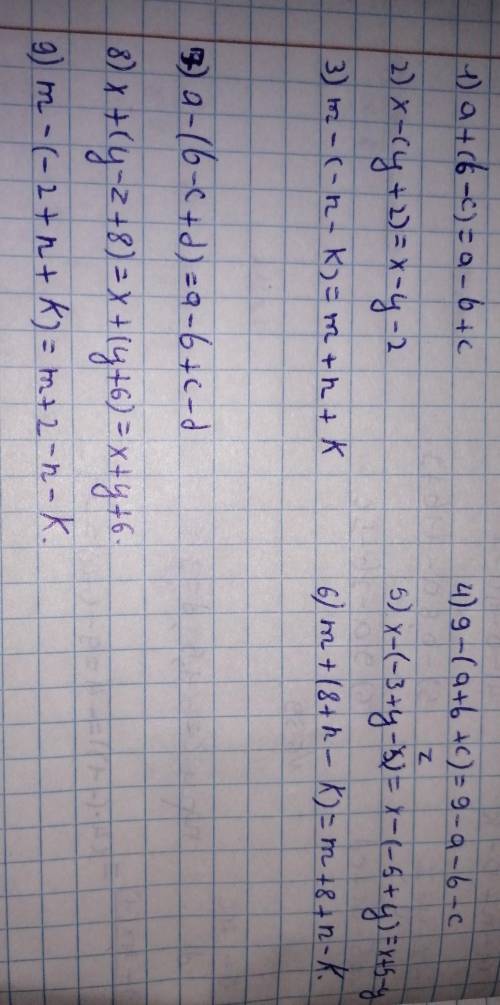 1) a+(b-c)=a-b+c
2) x-(y+2)=x-y-2
3) m-(-n-k)=m+n+k
4) 9-(a+b+c)=9-a-b-c
5) x-(-3+y-2)=x-(-5+y)=x+5-y
6) m+(8+n-k)=m+8+n-k.
7) a-(b-c+d)=a-b+c-d
8) x+(y-2+8)=x+(y+6)=x+y+6.
9) m-(-2+n+k)=m+2-n-k.